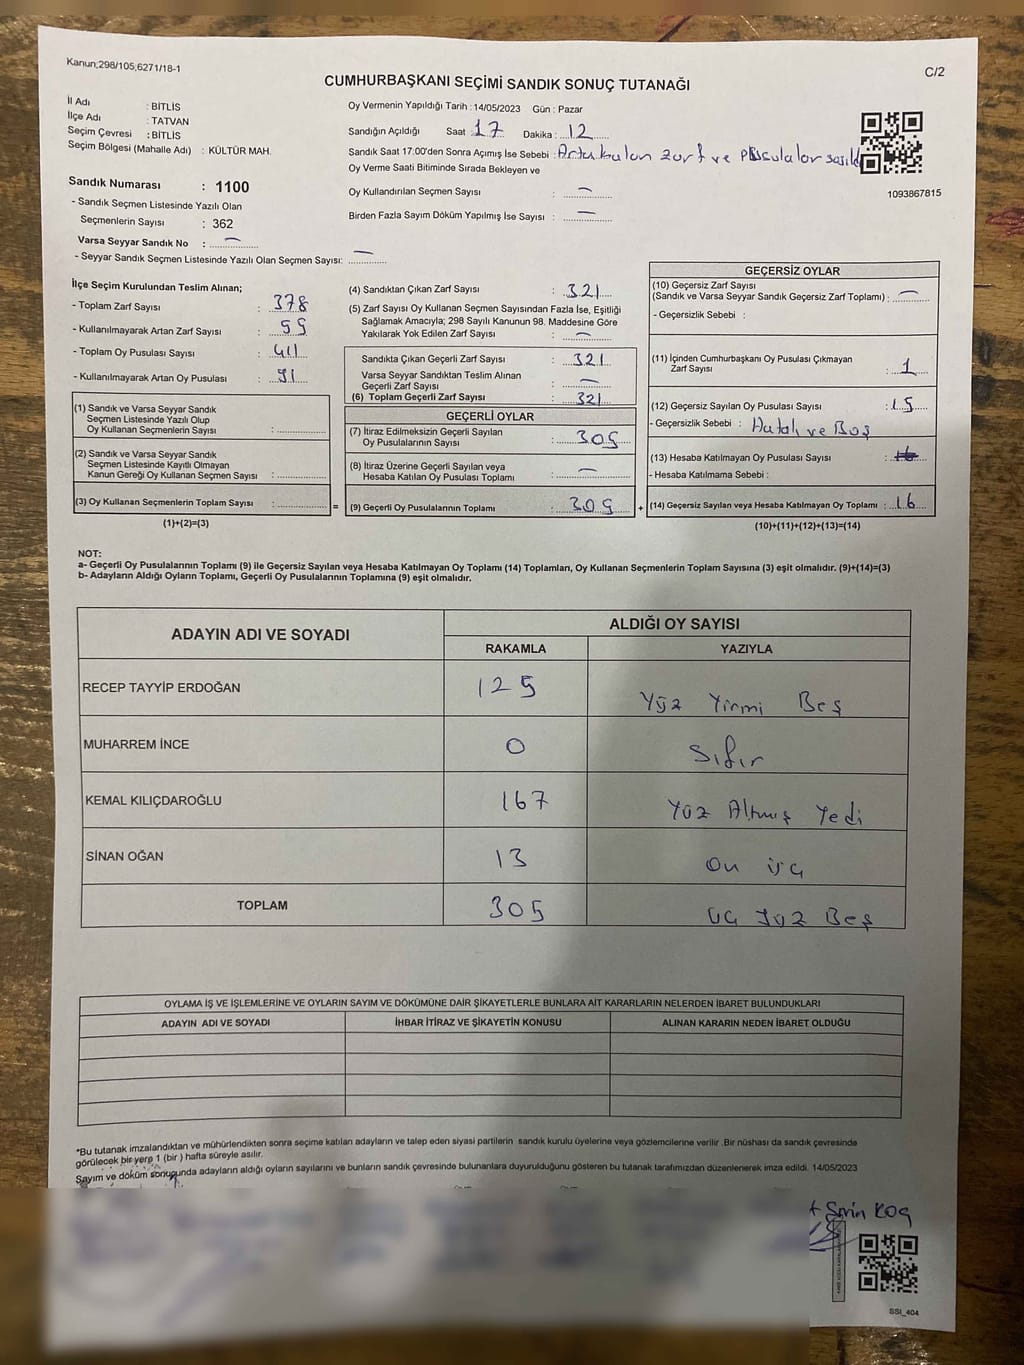 Kanun;298/105,6271/18-1
C/2
CUMHURBAŞKANI SEÇİMİ SANDIK SONUÇ TUTANAĞI
İl Adı : BİTLİS
İlçe Adı : TATVAN
Seçim Çevresi : BİTLİS
Seçim Bölgesi (Mahalle Adı) : KÜLTÜR MAH.
Oy Vermenin Yapıldığı Tarih : 14/05/2023 Gün : Pazar
Sandığın Açıldığı Saat : 17 Dakika : 12
Sandık Saat 17:00'den Sonra Açımış İse Sebebi : Artakalan zarf ve pusulalar
Oy Verme Saati Bitiminde Sırada Bekleyen ve
Oy Kullandırılan Seçmen Sayısı : —
Birden Fazla Sayım Döküm Yapılmış İse Sayısı : —
1093867815
Sandık Numarası : 1100
- Sandık Seçmen Listesinde Yazılı Olan
Seçmenlerin Sayısı : 362
Varsa Seyyar Sandık No : —
- Seyyar Sandık Seçmen Listesinde Yazılı Olan Seçmen Sayısı: —
İlçe Seçim Kurulundan Teslim Alınan;
- Toplam Zarf Sayısı : 378
- Kullanılmayarak Artan Zarf Sayısı :
- Toplam Oy Pusulası Sayısı : 411
- Kullanılmayarak Artan Oy Pusulası : 91
(1) Sandık ve Varsa Seyyar Sandık
Seçmen Listesinde Yazılı Olup
Oy Kullanan Seçmenlerin Sayısı :
(2) Sandık ve Varsa Seyyar Sandık
Seçmen Listesinde Kayıtlı Olmayan
Kanun Gereği Oy Kullanan Seçmen Sayısı :
(3) Oy Kullanan Seçmenlerin Toplam Sayısı : =
(1)+(2)=(3)
(4) Sandıktan Çıkan Zarf Sayısı : 321
(5) Zarf Sayısı Oy Kullanan Seçmen Sayısından Fazla İse, Eşitliği
Sağlamak Amacıyla; 298 Sayılı Kanunun 98. Maddesine Göre
Yakılarak Yok Edilen Zarf Sayısı : —
Sandıkta Çıkan Geçerli Zarf Sayısı : 321
Varsa Seyyar Sandıktan Teslim Alınan
Geçerli Zarf Sayısı : —
(6) Toplam Geçerli Zarf Sayısı : 321
GEÇERLİ OYLAR
(7) İtiraz Edilmeksizin Geçerli Sayılan
Oy Pusulalarının Sayısı : 305
(8) İtiraz Üzerine Geçerli Sayılan veya
Hesaba Katılan Oy Pusulası Toplamı : —
(9) Geçerli Oy Pusulalarının Toplamı : 305 +
GEÇERSİZ OYLAR
(10) Geçersiz Zarf Sayısı
(Sandık ve Varsa Seyyar Sandık Geçersiz Zarf Toplamı) : —
- Geçersizlik Sebebi :
(11) İçinden Cumhurbaşkanı Oy Pusulası Çıkmayan
Zarf Sayısı : 1
(12) Geçersiz Sayılan Oy Pusulası Sayısı : 15
- Geçersizlik Sebebi : Hatalı ve Boş
(13) Hesaba Katılmayan Oy Pusulası Sayısı :
- Hesaba Katılmama Sebebi :
(14) Geçersiz Sayılan veya Hesaba Katılmayan Oy Toplamı : 16
(10)+(11)+(12)+(13)=(14)
NOT:
a- Geçerli Oy Pusulalarının Toplamı (9) ile Geçersiz Sayılan veya Hesaba Katılmayan Oy Toplamı (14) Toplamları, Oy Kullanan Seçmenlerin Toplam Sayısına (3) eşit olmalıdır. (9)+(14)=(3)
b- Adayların Aldığı Oyların Toplamı, Geçerli Oy Pusulalarının Toplamına (9) eşit olmalıdır.
ADAYIN ADI VE SOYADI ALDIĞI OY SAYISI
RAKAMLA YAZIYLA
RECEP TAYYİP ERDOĞAN 125 Yüz Yirmi Beş
MUHARREM İNCE 0 Sıfır
KEMAL KILIÇDAROĞLU 167 Yüz Altmış Yedi
SİNAN OĞAN 13 On üç
TOPLAM 305 üç Yüz Beş
OYLAMA İŞ VE İŞLEMLERİNE VE OYLARIN SAYIM VE DÖKÜMÜNE DAİR ŞİKAYETLERLE BUNLARA AİT KARARLARIN NELERDEN İBARET BULUNDUKLARI
ADAYIN ADI VE SOYADI İHBAR İTİRAZ VE ŞİKAYETİN KONUSU ALINAN KARARIN NEDEN İBARET OLDUĞU
*Bu tutanak imzalandıktan ve mühürlendikten sonra seçime katılan adayların ve talep eden siyasi partilerin sandık kurulu üyelerine veya gözlemcilerine verilir .Bir nüshası da sandık çevresinde
görülecek bir yere 1 (bir ) hafta süreyle asılır.
Sayım ve döküm sonugunda adayların aldığı oyların sayılarını ve bunların sandık çevresinde bulunanlara duyurulduğunu gösteren bu tutanak tarafımızdan düzenlenerek imza edildi. 14/05/2023
SSI_404